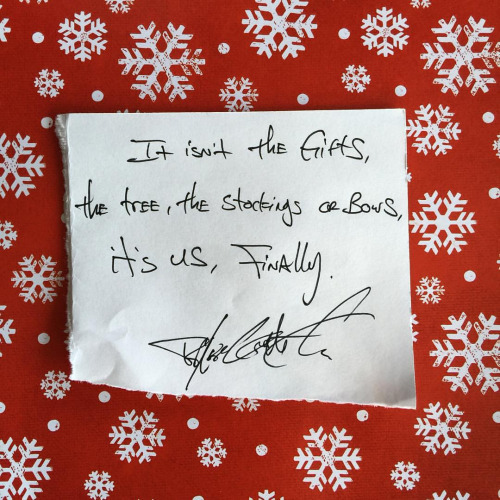 It isn't the Gifts,
the tree, the stockings or Bows,
it's us, Finally.